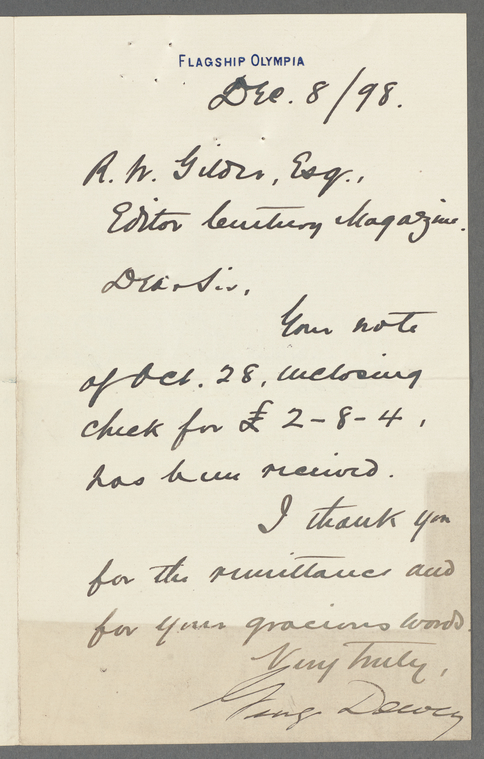 FLAGSHIP OLYMPIA
Dec. 8/98.
R. W. Gilder, Esq.,
Editor Century Magazine.
Dear Sir,
Your note
of Oct. 28, inclosing
check for £ 2-8-4,
has been received.
I thank you
for the remittance and
for your gracious words.
Very truly,
George Dewey